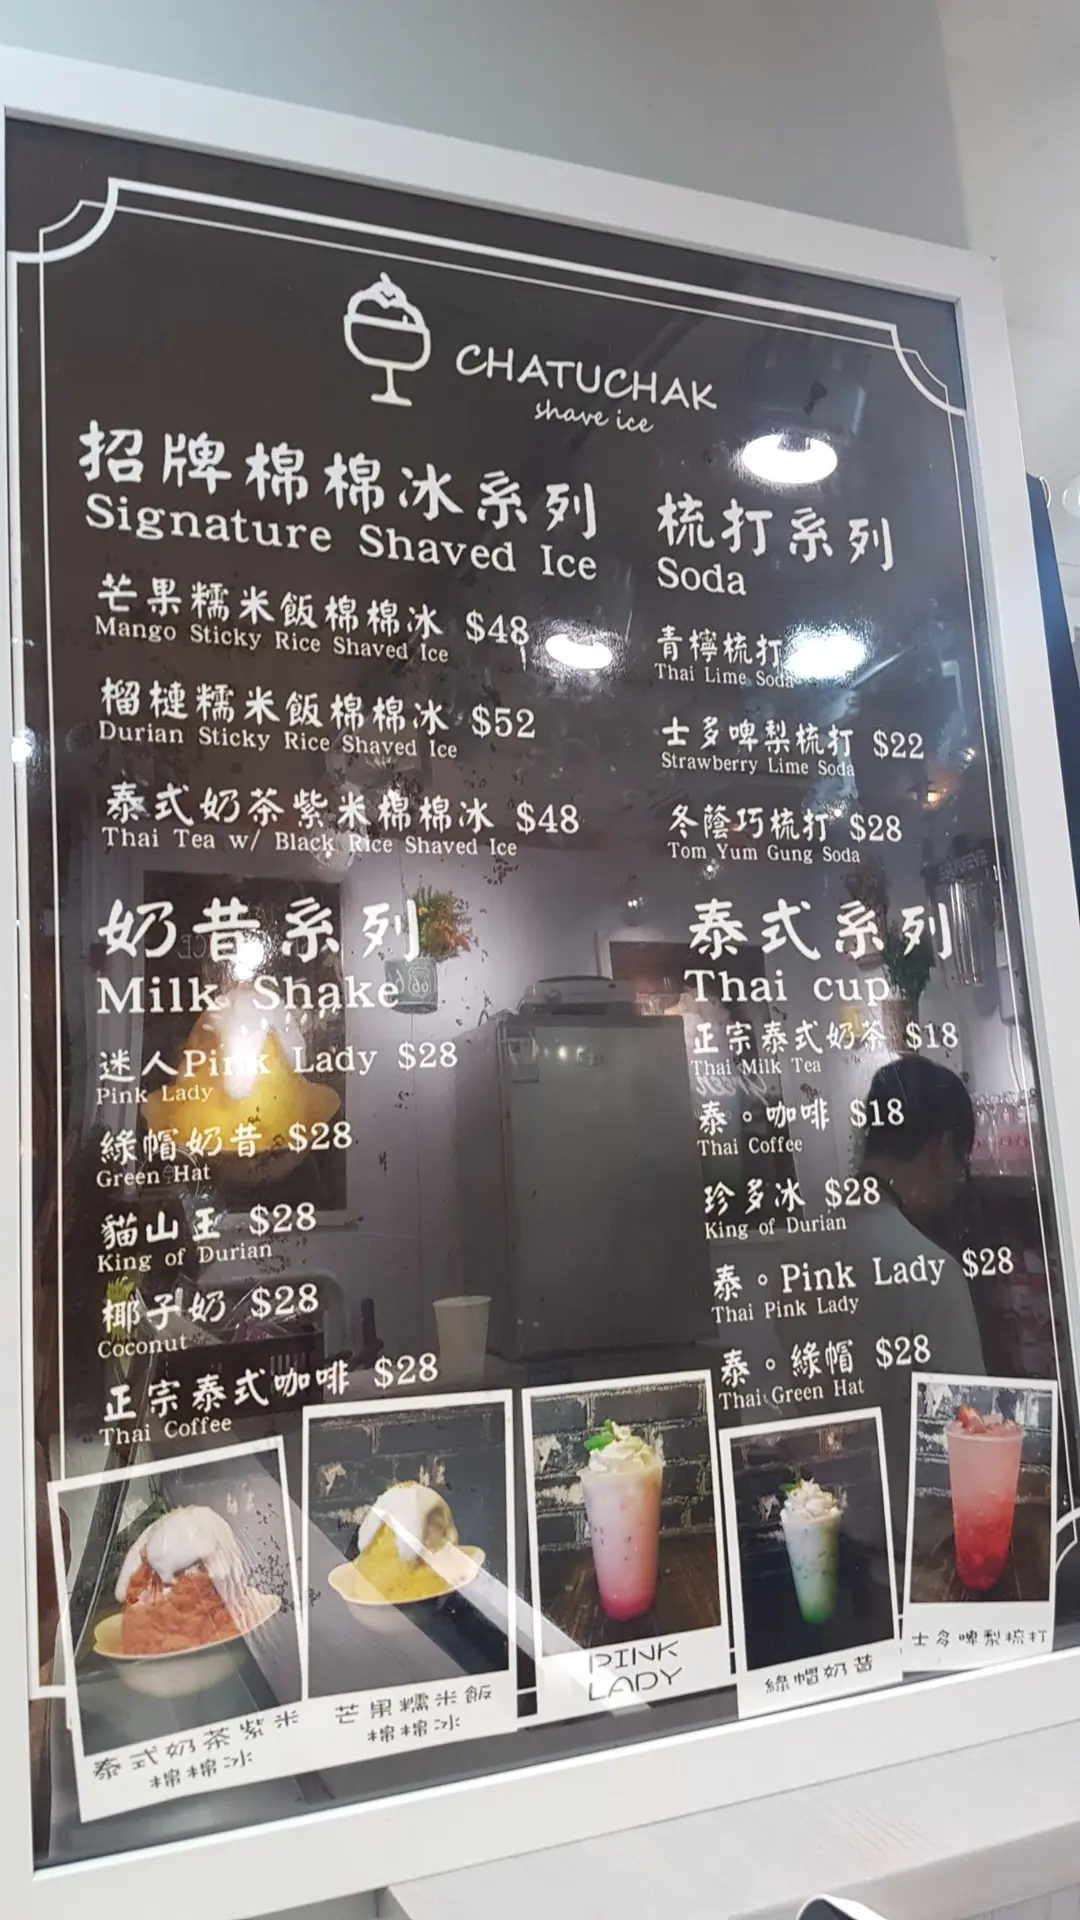 CHATUCHAK
shave ice
招牌棉棉冰系列
Signature Shaved Ice
芒果糯米飯棉棉冰 $48
Mango Sticky Rice Shaved Ice
榴槤糯米飯棉棉冰 $52
Durian Sticky Rice Shaved Ice
泰式奶茶紫米棉棉冰 $48
Thai Tea w/ Black Rice Shaved Ice
奶昔系列
Milk Shake
迷人Pink Lady $28
Pink Lady
綠帽奶昔 $28
Green Hat
貓山王 $28
King of Durian
椰子奶 $28
Coconut
正宗泰式咖啡 $28
Thai Coffee
梳打系列
Soda
青檸梳打
Thai Lime Soda
士多啤梨梳打 $22
Strawberry Lime Soda
冬蔭巧梳打 $28
Tom Yum Gung Soda
泰式系列
Thai cup
正宗泰式奶茶 $18
Thai Milk Tea
泰。咖啡 $18
Thai Coffee
珍多冰 $28
King of Durian
泰。Pink Lady $28
Thai Pink Lady
泰。綠帽 $28
Thai Green Hat
泰式奶茶紫米
棉棉冰
芒果糯米飯
棉棉冰
PINK
LADY
綠帽奶昔
士多啤梨梳打